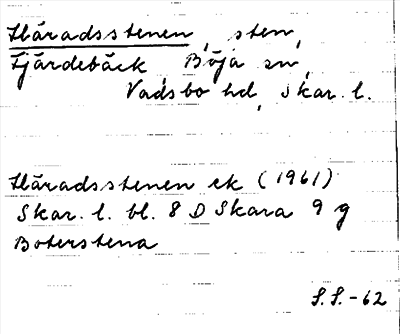 Häradsstenen, sten,
Fjärdebäck, Böja sn,
Vadsbo hd, Skar. l.
Häradsstenen ek (1961)
Skar. l. bl. 8 D Skara 9 g
Boterstena
S.S.-62